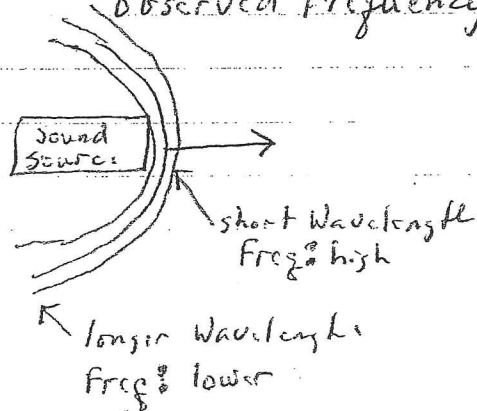 Observed Frequency
Sound
Source:
short Wavelength
Freq: high
longer Wavelength:
Freq: lower